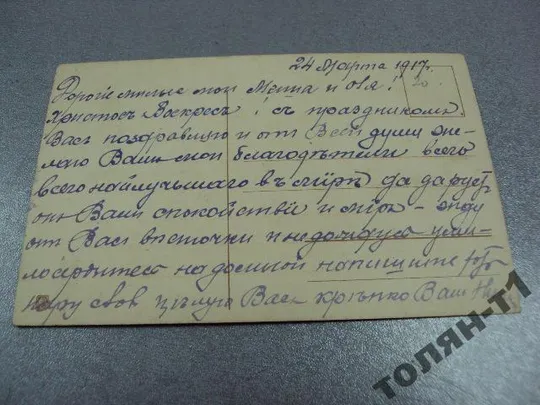 24 Марта 1917г.
Дорогие милые мои Метта и Оля!
20
Христосъ Воскресъ! съ праздникомъ
Васъ поздравляю и отъ всей души же-
лаю Вамъ мои благодѣтели всего
всего наилучьшаго въ мірѣ да даруетъ
онъ Вамъ спокойствіе и міръ – жду
отъ Васъ вѣсточки и не дождусь – уми-
лосердитесь надо мной напишите хоть
пару словъ цѣлую Васъ крѣпко Ваш
ТОЛЯН-Т1